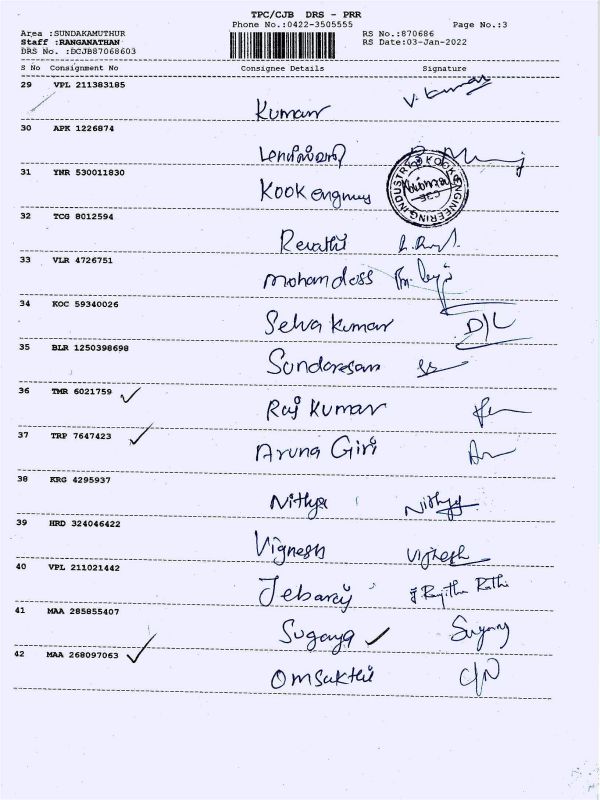 TPC/CJB DRS - PRR
Phone No.:0422-3505555 Page No.:3
Area :SUNDAKAMUTHUR RS No.:870686
Staff :RANGANATHAN RS Date:03-Jan-2022
DRS No. :DCJB87068603
S No Consignment No Consignee Details Signature
29 VPL 211383185
Kumar V. Kumar
30 APK 1226874
31 YNR 530011830
Kook engnus
KOOK ENGINEERING INDUSTRY
32 TCG 8012594
Revathi
33 VLR 4726751
mohandoss
34 KOC 59340026
Selva Kumar
35 BLR 1250398698
Sundaresan
36 TMR 6021759
Raj Kumar
37 TRP 7647423
Aruna Giri
38 KRG 4295937
Nithya Nithya
39 HRD 324046422
Vignesh Vignesh
40 VPL 211021442
Jebaraj
41 MAA 285855407
Suganya
42 MAA 268097063
Omsakthi